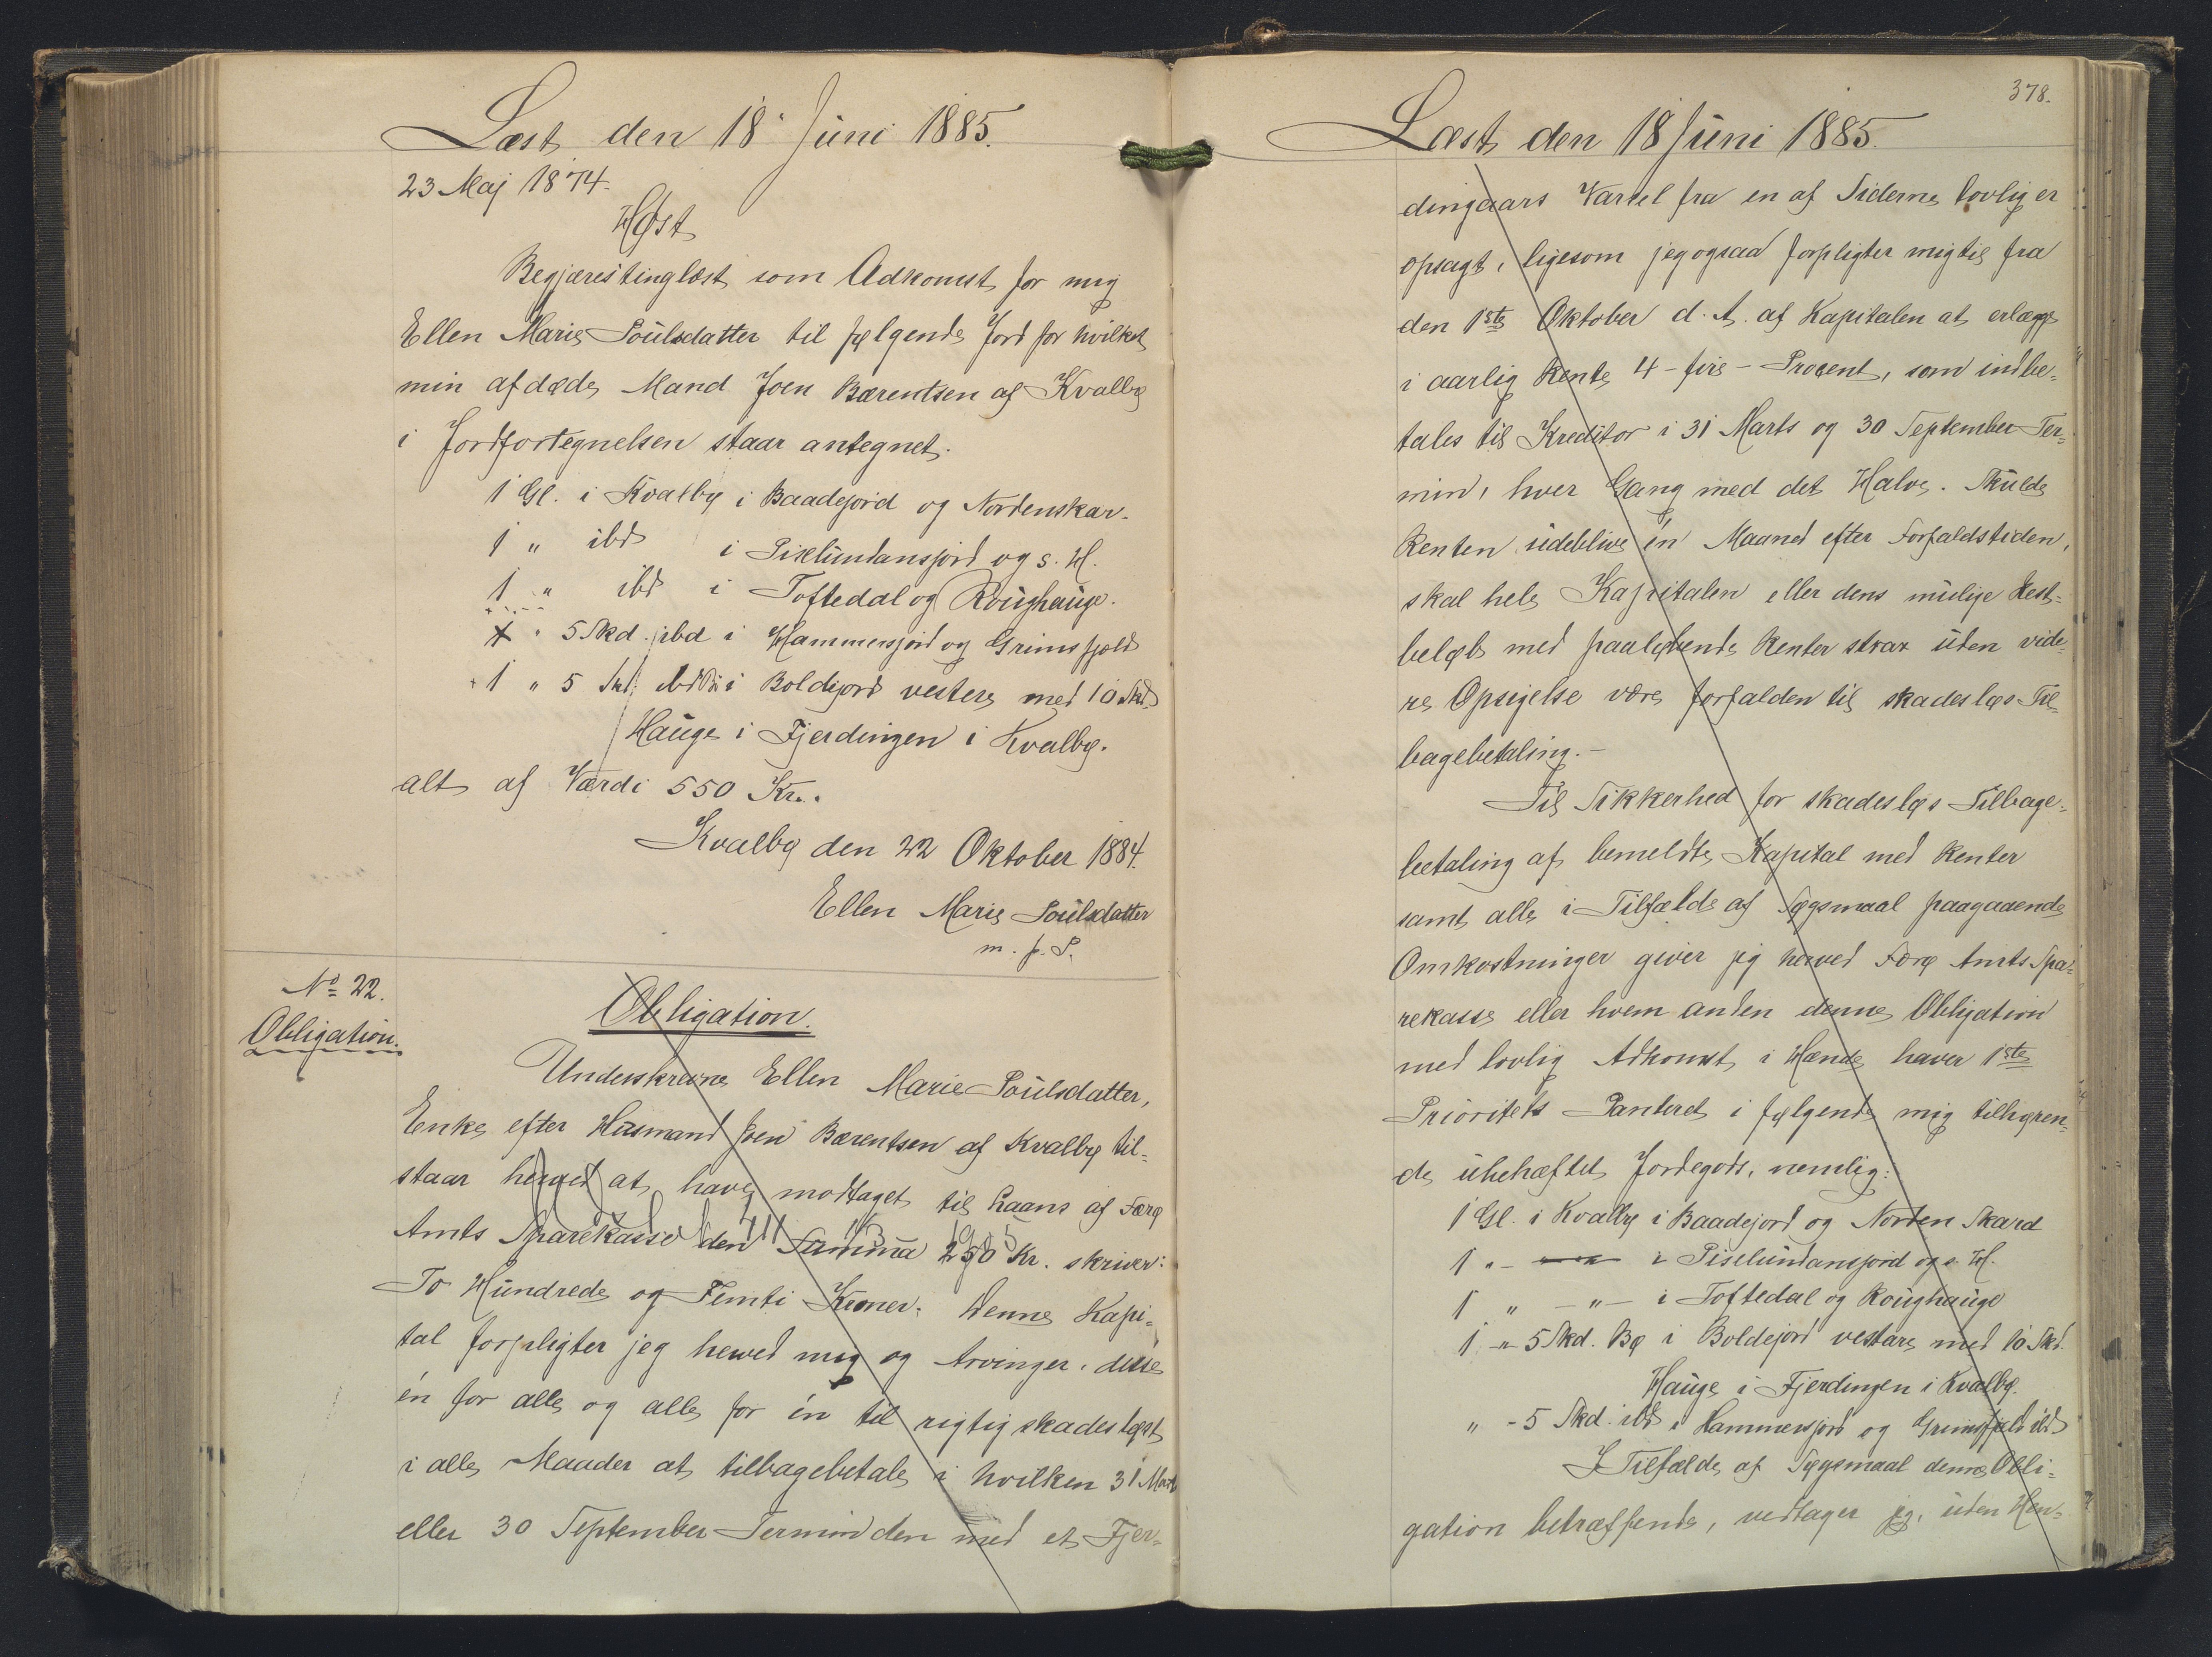 Læst den 18 Juni 1885.
23 Maj 1874.
Høst
Begjæres tinglæst som Adkomst for mig
Ellen Marie Poulsdatter til følgende Jord for hvilket
min afdøde Mand Joen Bærentsen af Kvalbø
i Jordfortegnelsen staar antegnet.
1 Gl. i Kvalbø i Baadejord og Nordenskar.
1 " ibd i Piselundansjord og s. H.
1 " ibd i Toftedal og Roughauge.
" 5 Skd. ibd i Hammersjord og Grimsfjeld
1 " 5 Skd. ibd Bø i Boldejord vestere med 10 Skd.
Hauge i Fjerdingen i Kvalbø.
alt af Værdi 550 Kr.
Kvalbø den 22 Oktober 1884.
Ellen Marie Poulsdatter
m. f. P.
No 22.
Obligation.
Obligation.
Underskrevne Ellen Marie Poulsdatter,
Enke efter Husmand Joen Bærentsen af Kvalbø til-
staar herved at have modtaget til Laans af Færø
Amts Sparekasse den Summa 250 Kr. skriver:
To Hundrede og Femti Kroner. Denne Kapi-
tal forpligter jeg herved mig og Arvinger, disse
én for alle og alle for én til rigtig skadesløst
i alle Maader at tilbagebetale i hvilken 31 Marts
eller 30 September Termin den med et Fjer-
378.
Læst den 18 Juni 1885.
dingaars Varsel fra en af Siderne lovlig er
opsagt, ligesom jeg ogsaa forpligter mig til fra
den 1ste Oktober d. A. af Kapitalen at erlægge
i aarlig Rente 4 - fire - Procent, som indbe-
tales til Kreditor i 31 Marts og 30 September Ter-
min, hver Gang med det Halve. Skulde
Renten udeblive én Maaned efter Forfaldstiden,
skal hele Kapitalen eller dens mulige Rest-
beløb med paaløbende Renter strax uden vide-
re Opsigelse være forfalden til skadesløs Til-
bagebetaling. -
Til Sikkerhed for skadesløs Tilbage-
betaling af bemeldte Kapital med Renter
samt alle i Tilfælde af Søgsmaal paagaaende
Omkostninger giver jeg herved Færø Amts Spa-
rekasse eller hvem anden denne Obligation
med lovlig Adkomst i Hænde haver 1ste
Prioritets Panteret i følgende mig tilhøren-
de ubehæftet Jordegods, nemlig:
1 Gl. i Kvalbø i Baadejord og Norden Skard
1 " - " i Piselundansjord og s. H.
1 " - " - i Toftedal og Roughauge
1 " 5 Skd. Bø i Boldejord vestare med 10 Skd.
Hauge i Fjerdingen i Kvalbø.
" - 5 Skd. ibd i Hammersjord og Grimsfjeld ibd
I Tilfælde af Søgsmaal denne Obli-
gation betræffende, vedtager jeg, uden Hen-